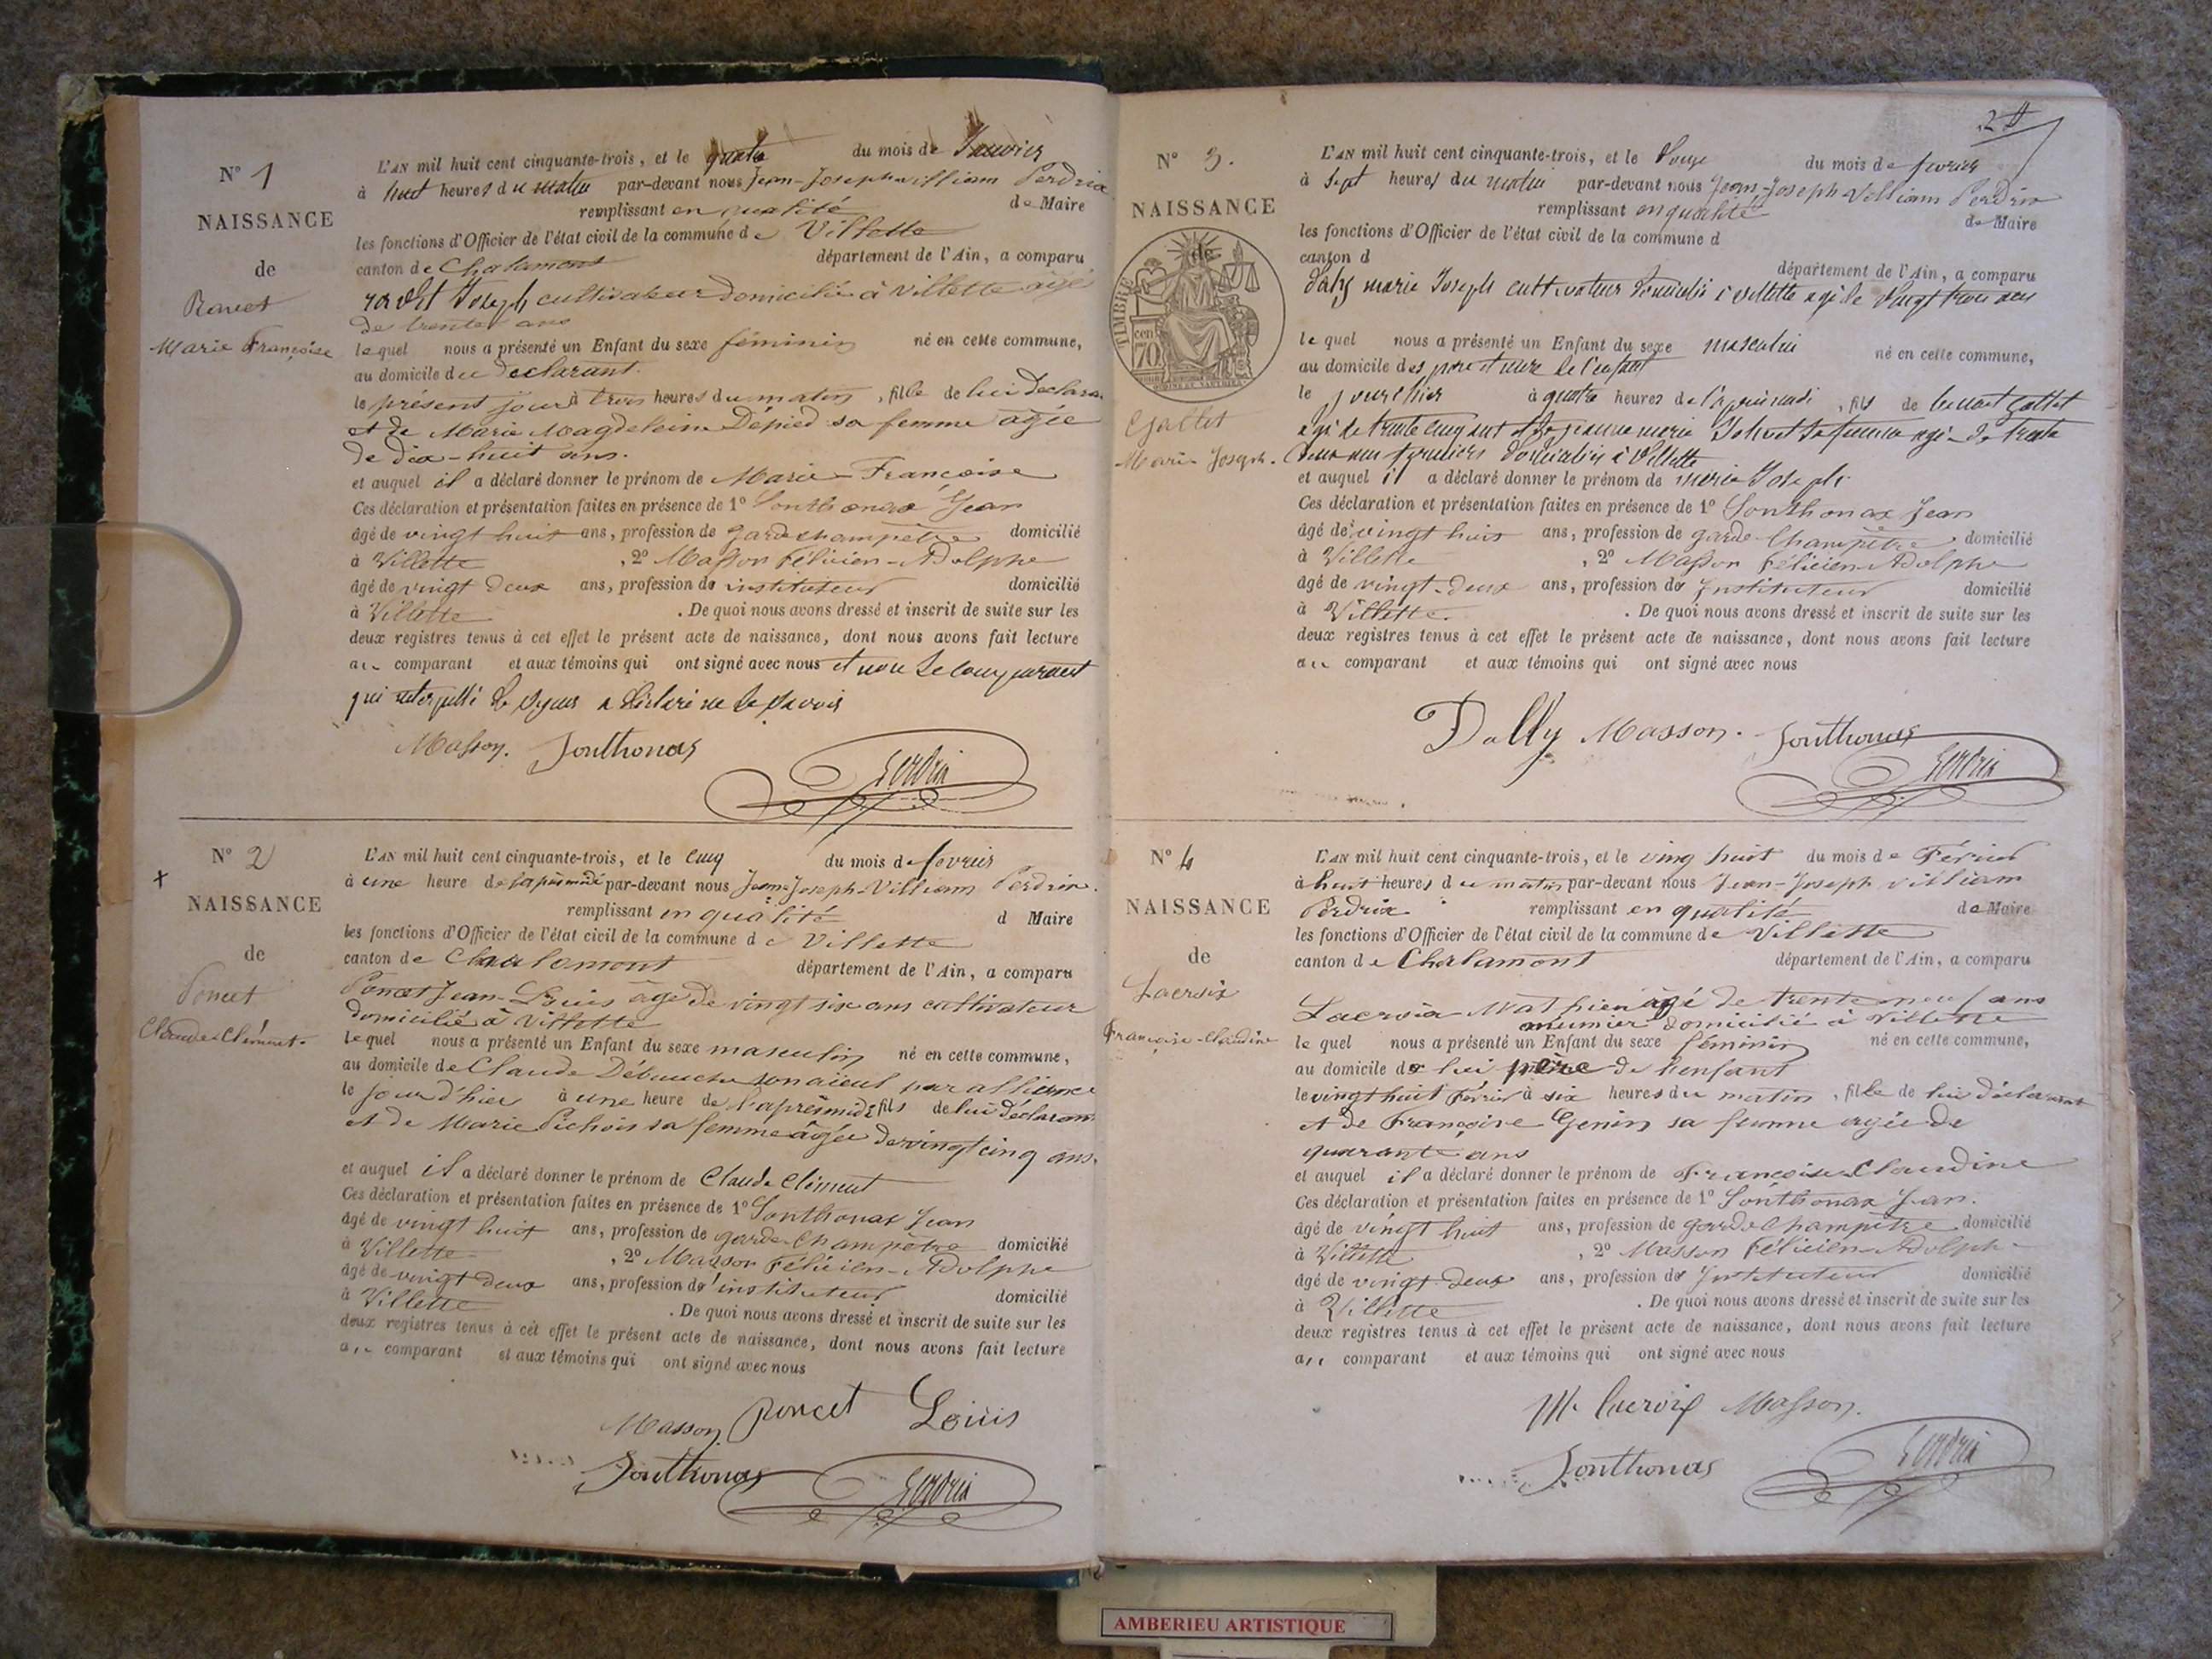 N° 1
NAISSANCE
de
Ravet
Marie Françoise
L'AN mil huit cent cinquante-trois, et le quatre du mois de Janvier
à huit heures du matin par-devant nous Jean-Joseph-william Perdrix
remplissant en qualité de Maire
les fonctions d'Officier de l'état civil de la commune de Villette
canton de Chalamont département de l'Ain, a comparu
Joseph cultivateur domicilié à Villette agé
de trente ans
lequel nous a présenté un Enfant du sexe féminin né en cette commune,
au domicile du declarant.
le présent jour à trois heures du matin, fille de lui declarant
et de Marie Magdeleine Dépied sa femme agée
de dix-huit ans.
et auquel il a déclaré donner le prénom de Marie-Françoise
Ces déclaration et présentation faites en présence de 1° Sonthonax Jean
âgé de vingt huit ans, profession de garde champêtre domicilié
à Villette, 2° Masson Félicien-Adolphe
âgé de vingt deux ans, profession de instituteur domicilié
à Villette. De quoi nous avons dressé et inscrit de suite sur les
deux registres tenus à cet effet le présent acte de naissance, dont nous avons fait lecture
au comparant et aux témoins qui ont signé avec nous et non le comparant
qui interpellé de signer a déclaré ne le savoir
Masson. Sonthonax
Perdrix
N° 2
NAISSANCE
de
Poncet
Claude Clément.
L'AN mil huit cent cinquante-trois, et le cinq du mois de fevrier
à une heure de l'aprèsmidi par-devant nous Jean-Joseph-Villiam Perdrix.
remplissant en qualité d Maire
les fonctions d'Officier de l'état civil de la commune de Villette
canton de Chalamont département de l'Ain, a comparu
Poncet Jean-Louis âgé de vingt six ans cultivateur
domicilié à Villette
lequel nous a présenté un Enfant du sexe masculin né en cette commune,
au domicile de Claude Débauche son aïeul par alliance
le jour d'hier à une heure de l'aprèsmidi, fils de lui déclarant
et de Marie Pichois sa femme âgée de vingt cinq ans.
et auquel il a déclaré donner le prénom de Claude Clément
Ces déclaration et présentation faites en présence de 1° Sonthonax Jean
âgé de vingt huit ans, profession de garde-Champêtre domicilié
à Villette, 2° Masson Félicien-Adolphe
âgé de vingt deux ans, profession de instituteur domicilié
à Villette. De quoi nous avons dressé et inscrit de suite sur les
deux registres tenus à cet effet le présent acte de naissance, dont nous avons fait lecture
au comparant et aux témoins qui ont signé avec nous
Masson Poncet Louis
Sonthonax Perdrix
N° 3.
NAISSANCE
de
TIMBRE
cen
70
Gallet
Marie Joseph.
L'AN mil huit cent cinquante-trois, et le Douze du mois de fevrier
à sept heures du matin par-devant nous Jean-Joseph-Villiam Perdrix
remplissant en qualité de Maire
les fonctions d'Officier de l'état civil de la commune d
canton d département de l'Ain, a comparu
Daly marie Joseph cultivateur domicilié à villette agé de vingt trois ans
lequel nous a présenté un Enfant du sexe masculin né en cette commune,
au domicile des père et mère de l'enfant
le jour d'hier à quatre heures de l'aprèsmidi, fils de benoit Gallet
agé de trente cinq ans et de jeanne marie sa femme agée de trente
deux ans fermiers domiciliés à Villette
et auquel il a déclaré donner le prénom de marie Joseph
Ces déclaration et présentation faites en présence de 1° Sonthonax Jean
âgé de vingt huit ans, profession de garde-Champêtre domicilié
à Villette, 2° Masson Félicien-Adolphe
âgé de vingt-deux ans, profession de Instituteur domicilié
à Villette. De quoi nous avons dressé et inscrit de suite sur les
deux registres tenus à cet effet le présent acte de naissance, dont nous avons fait lecture
au comparant et aux témoins qui ont signé avec nous
Dally Masson. Sonthonax
Perdrix
N° 4
NAISSANCE
de
Lacroix
Françoise-Claudine
L'AN mil huit cent cinquante-trois, et le ving huit du mois de Février
à huit heures du matin par-devant nous Jean-Joseph villiam
Perdrix remplissant en qualité de Maire
les fonctions d'Officier de l'état civil de la commune de Villette
canton de Chalamont département de l'Ain, a comparu
Lacroix Mathieu agé de trente neuf ans
meunier domicilié à Villette
lequel nous a présenté un Enfant du sexe féminin né en cette commune,
au domicile de lui père de l'enfant
le vingt huit Février à six heures du matin, fille de lui déclarant
et de Françoise Genin sa femme agée de
quarante ans
et auquel il a déclaré donner le prénom de Françoise Claudine
Ces déclaration et présentation faites en présence de 1° Sonthonax Jean.
âgé de vingt huit ans, profession de garde champêtre domicilié
à Villette, 2° Masson Félicien-Adolphe
âgé de vingt-deux ans, profession de Instituteur domicilié
à Villette. De quoi nous avons dressé et inscrit de suite sur les
deux registres tenus à cet effet le présent acte de naissance, dont nous avons fait lecture
au comparant et aux témoins qui ont signé avec nous
M. lacroix Masson.
Sonthonax Perdrix
AMBERIEU ARTISTIQUE